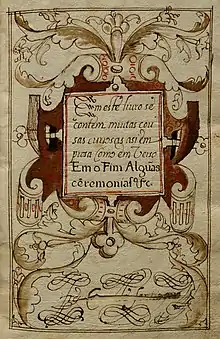 Em este liuro sé
contem, muitas cou-
sas curiosas asi em
prosa Como em Verso
Em o Fim Alguãs
cêremonias &c.